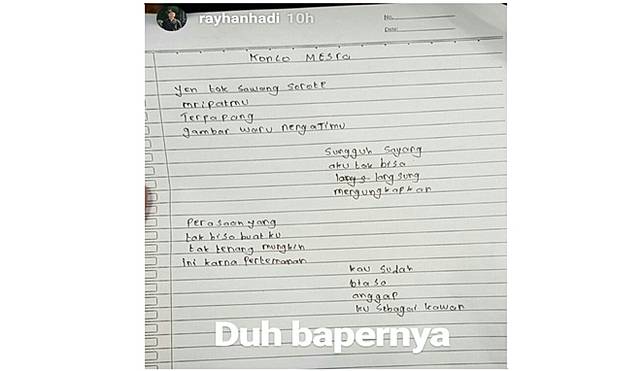 rayhanhadi 10h
No.
Date:
Konco Mesra
Yen tak sawang sorote
mripatmu
Terpapang
gambar waru nengatimu
Sungguh Sayang
aku tak bisa
langsung
mengungkapkan
Perasaan yang
tak bisa buat ku
tak tenang mungkin
Ini karna Pertemanan
kau sudah
biasa
anggap
ku sebagai kawan
Duh bapernya